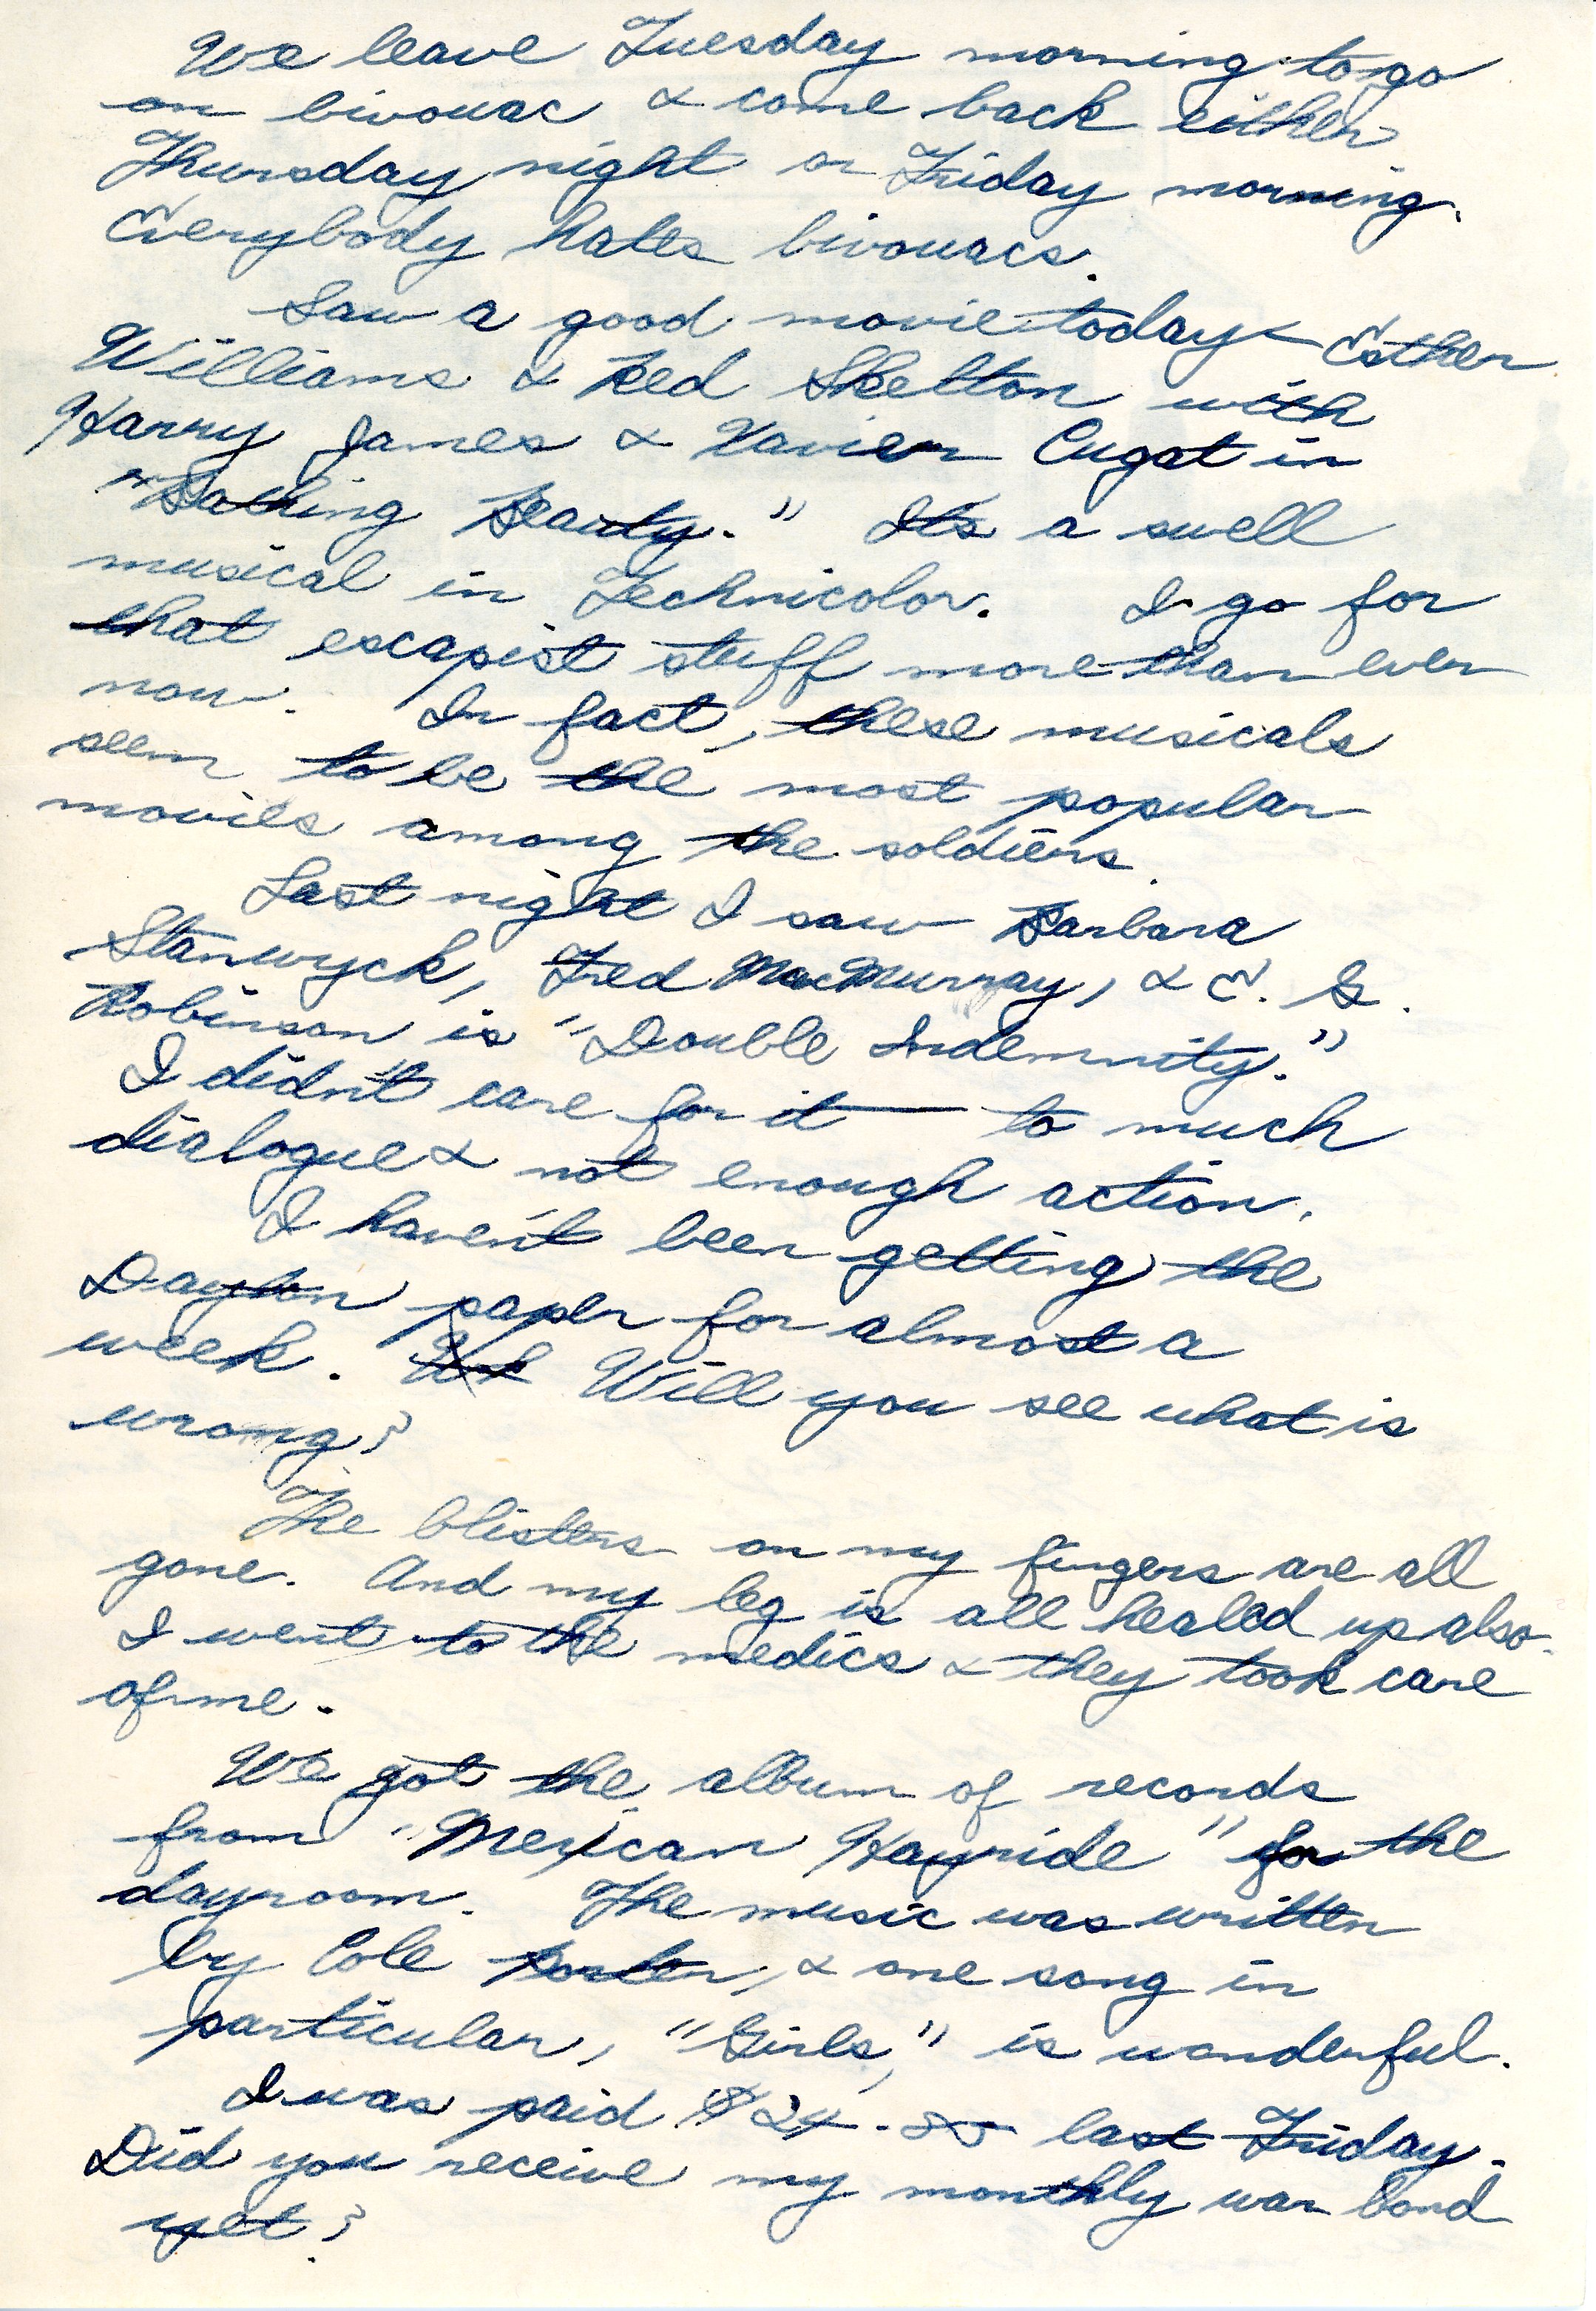 We leave Tuesday morning to go
on bivouac & come back either
Thursday night or Friday morning.
Everybody hates bivouacs.
Saw a good movie today - Esther
Williams & Red Skelton with
Harry James & Xavier Cugat in
"Bathing Beauty." Its a swell
musical in Technicolor. I go for
that escapist stuff more than ever
now. In fact, these musicals
seem to be the most popular
movies among the soldiers.
Last night I saw Barbara
Stanwyck, Fred MacMurray, & E. G.
Robinson is "Double Indemnity."
I didn't care for it — to much
dialogue & not enough action.
I haven't been getting the
Dayton paper for almost a
week. Will you see what is
wrong?
The blisters on my fingers are all
gone. And my leg is all healed up also.
I went to the medics & they took care
of me.
We got the album of records
from "Mexican Hayride" for the
dayroom. The music was written
by Cole Porter, & one song in
particular, "Girls," is wonderful.
I was paid $24.85 last Friday.
Did you receive my monthly war bond
yet?